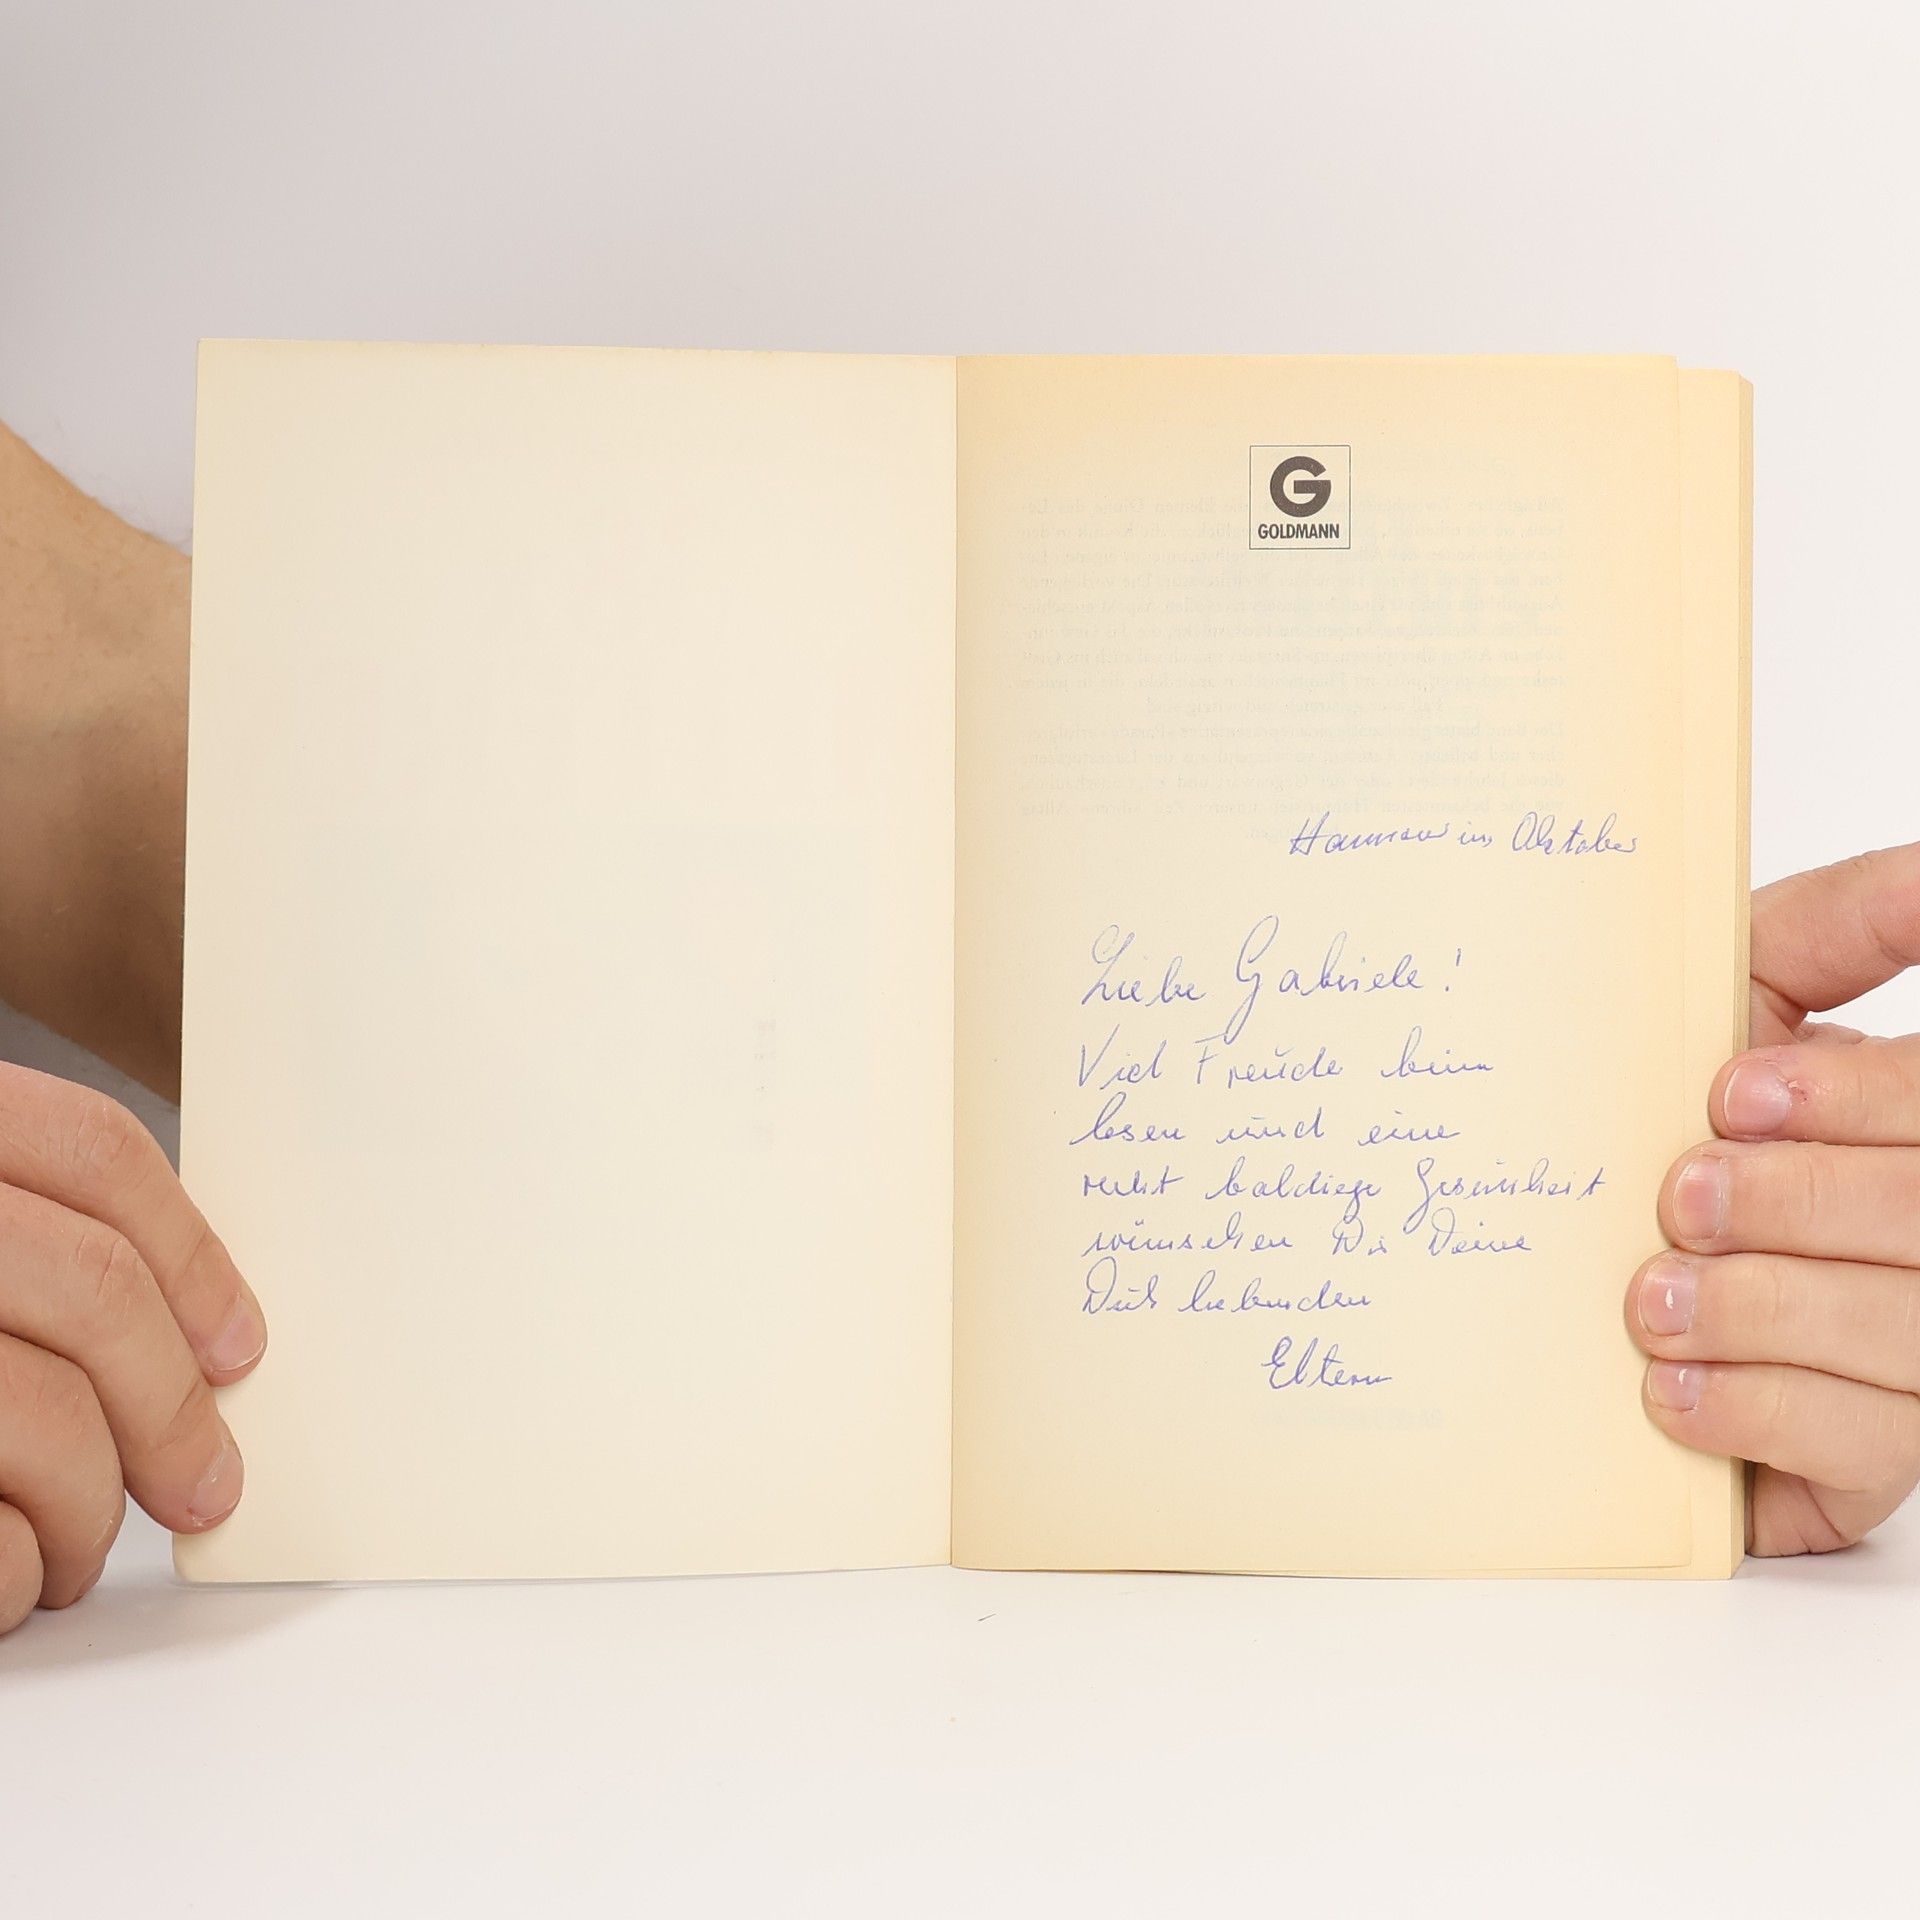 G
GOLDMANN
Hannover im Oktober
Liebe Gabriele!
Viel Freude beim
lesen und eine
recht baldige Gesünheit
wünschen Dir Deine
Dich liebenden
Eltern